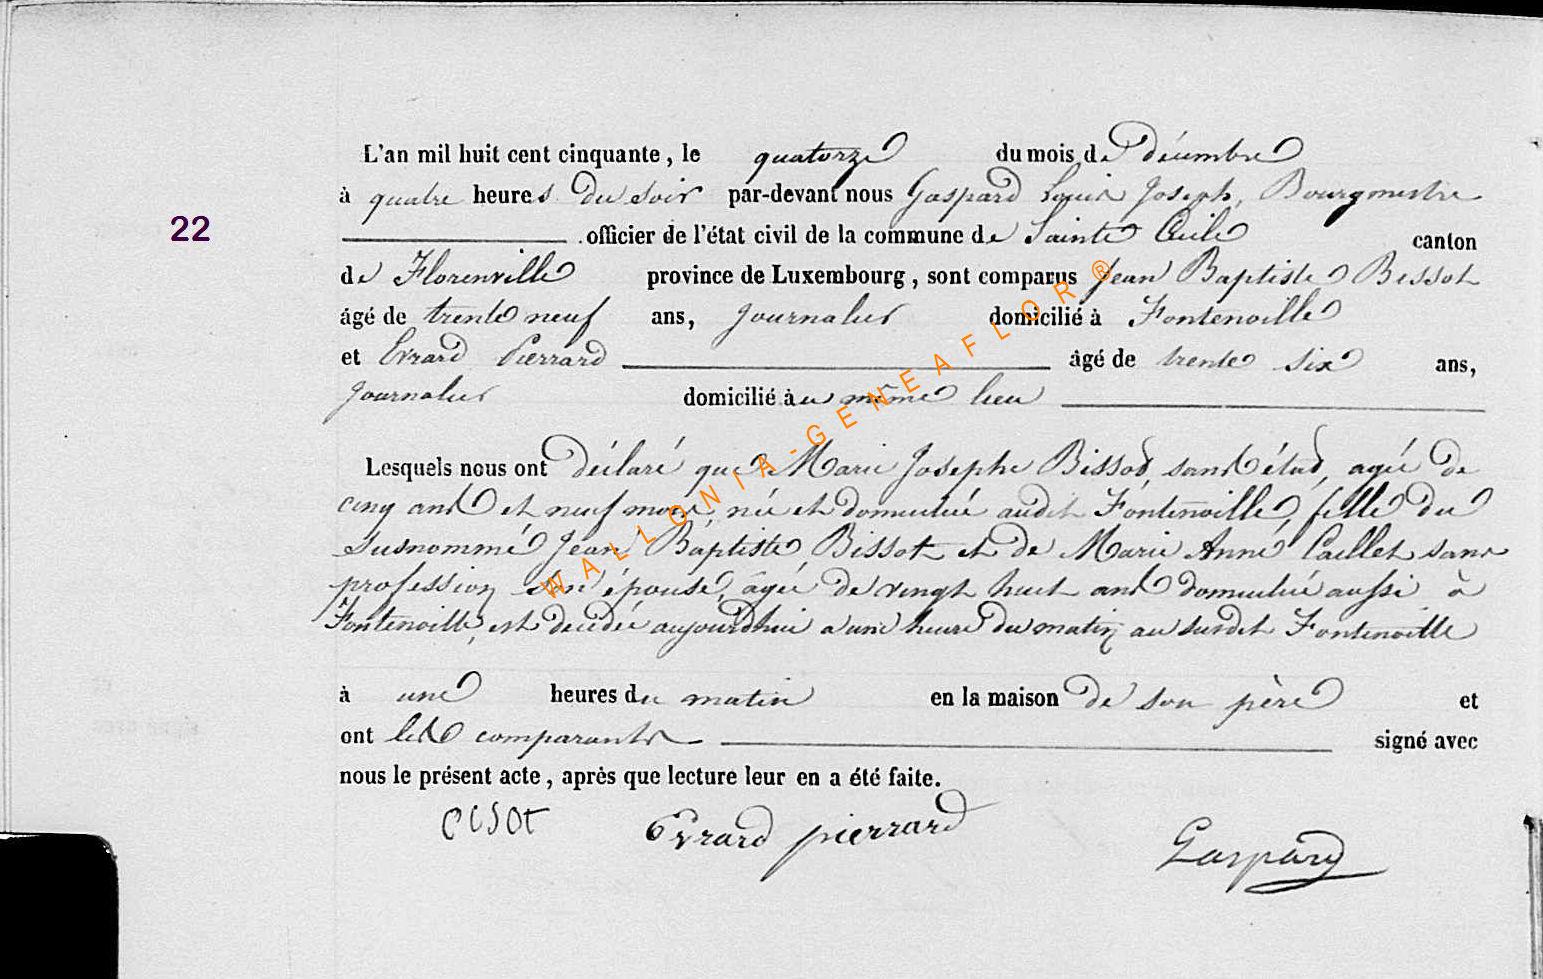 L'an mil huit cent cinquante, le quatorze du mois de décembre
à quatre heures du soir par-devant nous Gaspard Louis Joseph, Bourgmestre
22
officier de l'état civil de la commune de Sainte Cécile canton
de Florenville province de Luxembourg, sont comparus Jean Baptiste Bissot
âgé de trente neuf ans, Journalier domicilié à Fontenoille
et Evrard Pierrard âgé de trente six ans,
Journalier domicilié au même lieu
Lesquels nous ont déclaré que Marie Josephe Bissot, sans état, agée de
cinq ans et neuf mois, née et domiciliée audit Fontenoille, fille du
susnommé Jean Baptiste Bissot et de Marie Anne Caillet sans
profession son épouse, âgée de vingt huit ans domiciliée aussi à
Fontenoille, est decédée aujourdhui a une heure du matin au susdit Fontenoille
à une heures du matin en la maison de son père et
ont les comparants signé avec
nous le présent acte, après que lecture leur en a été faite.
Evrard pierrard
Gaspard
WALLONIA-GENEAFLOR ®